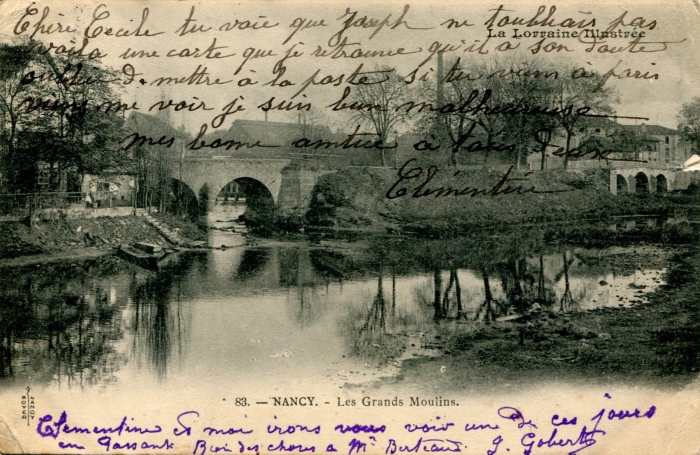 Chère Cecile tu voie que Joseph ne toubliais pas
La Lorraine Illustrée
voila une carte que je retrouve qu'il a son doute
oublié d. mettre à la poste Si tu viens à paris
viens me voir je suis bien malheureuse
Mes bonne amitue à tous deux
Clémentine
83. — NANCY. — Les Grands Moulins.
Clementine et moi irons vous voir un de ces jours
en passant Bien des choses à Mr Berteaud J. Gobert